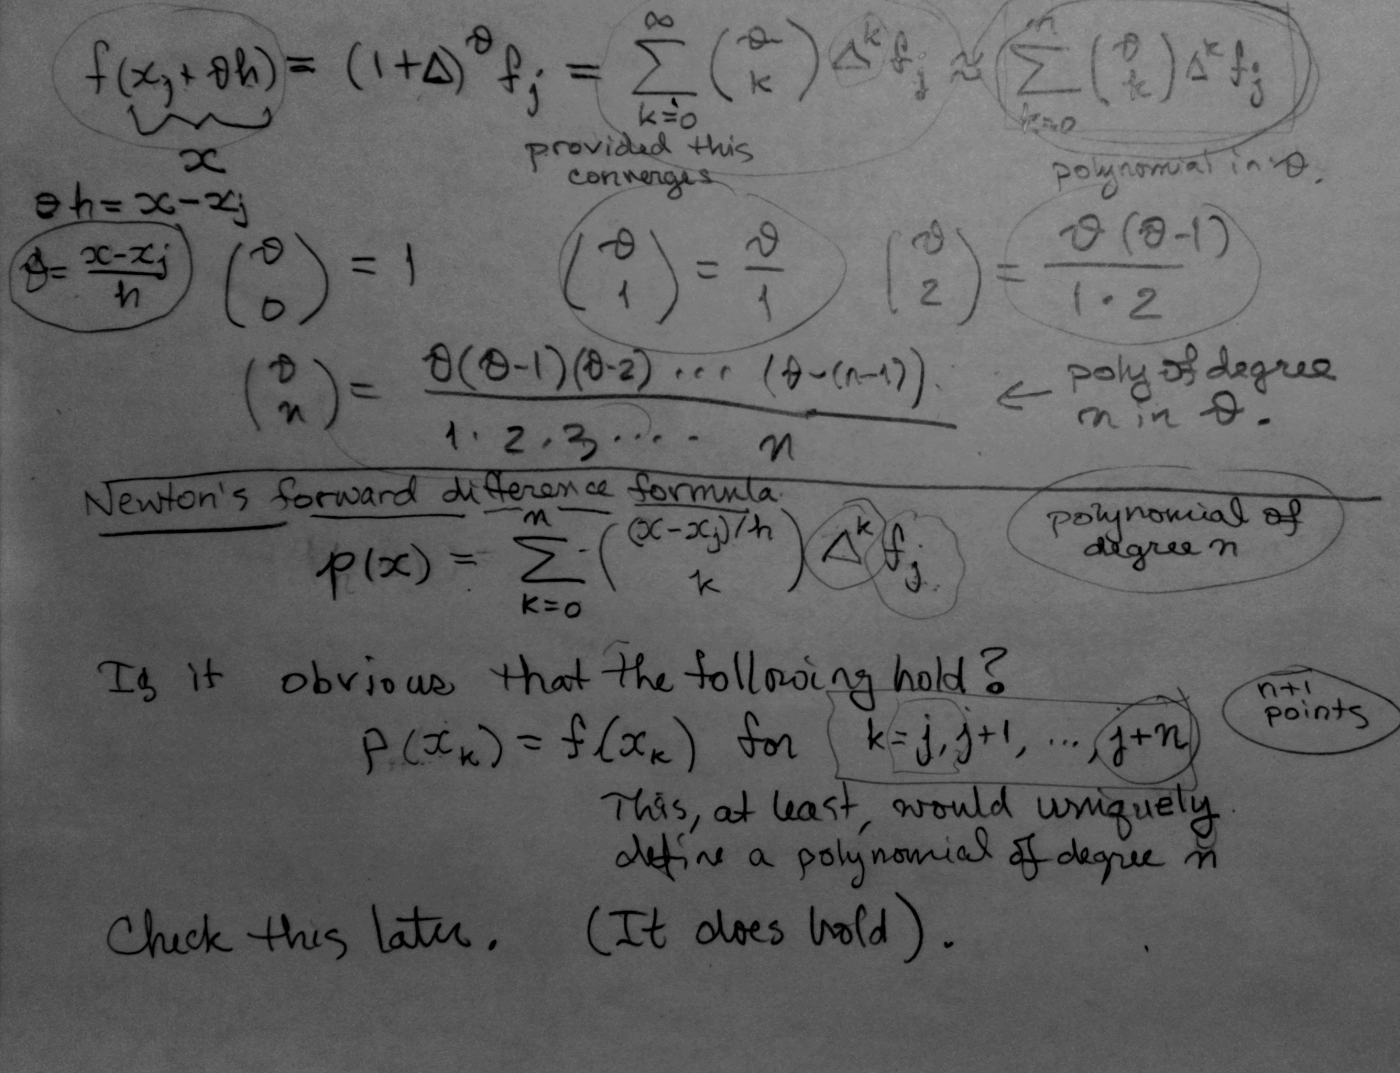 f(x_j + ϑh) = (1+Δ)^ϑ f_j = ∑_{k=0}^{∞} (ϑ k) Δ^k f_j ≈ ∑_{k=0}^{n} (ϑ k) Δ^k f_j
x
provided this
converges
polynomial in ϑ.
θh = x - x_j
ϑ = (x-x_j)/h (ϑ 0) = 1 (ϑ 1) = ϑ/1 (ϑ 2) = ϑ(ϑ-1)/1·2
(ϑ n) = ϑ(ϑ-1)(ϑ-2)...(ϑ-(n-1))/1·2·3·... n ← poly of degree
n in ϑ.
Newton's forward difference formula.
p(x) = ∑_{k=0}^{n} ((x-x_j)/h k) Δ^k f_j
polynomial of
degree n
Is it obvious that the following hold?
p(x_k) = f(x_k) for k=j, j+1, ..., j+n
n+1
points
This, at least, would uniquely
define a polynomial of degree n
Check this later. (It does hold).